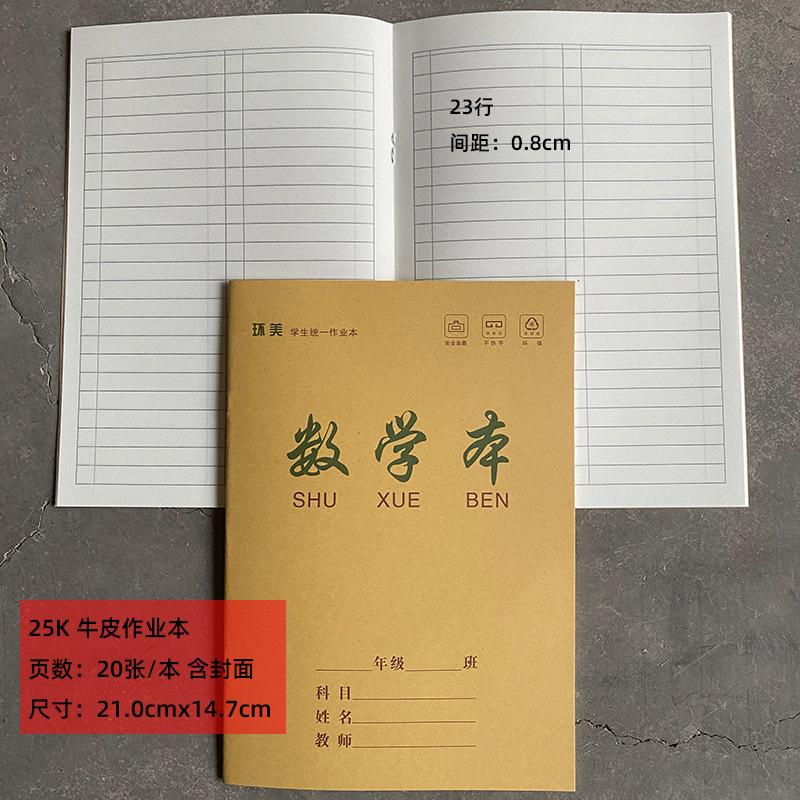 23行
间距：0.8cm
环美 学生统一作业本
安全油墨 不伤手 环保
数学本
SHU XUE BEN
25K 牛皮作业本
页数：20张/本 含封面
尺寸：21.0cmx14.7cm
______年级______班
科目____________
姓名____________
教师____________